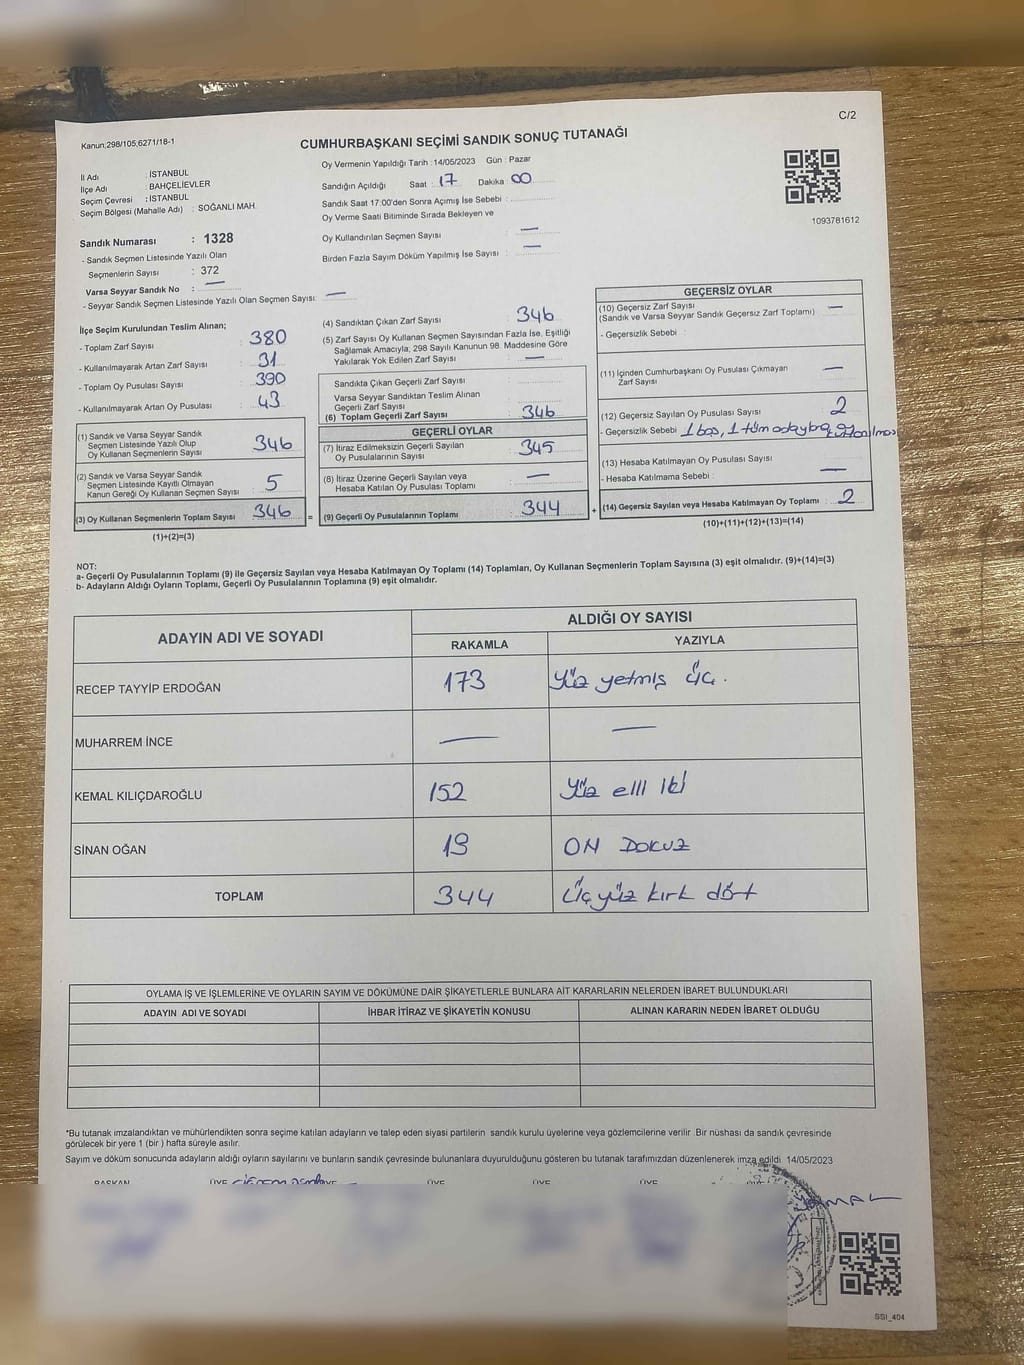 C/2
Kanun;298/105;6271/18-1
CUMHURBAŞKANI SEÇİMİ SANDIK SONUÇ TUTANAĞI
İl Adı : İSTANBUL
İlçe Adı : BAHÇELİEVLER
Seçim Çevresi : İSTANBUL
Seçim Bölgesi (Mahalle Adı) : SOĞANLI MAH.
Oy Vermenin Yapıldığı Tarih :14/05/2023 Gün : Pazar
Sandığın Açıldığı Saat : 17 Dakika : 00
Sandık Saat 17:00'den Sonra Açımış İse Sebebi :
Oy Verme Saati Bitiminde Sırada Bekleyen ve
Oy Kullandırılan Seçmen Sayısı : —
Birden Fazla Sayım Döküm Yapılmış İse Sayısı : —
1093781612
Sandık Numarası : 1328
- Sandık Seçmen Listesinde Yazılı Olan
Seçmenlerin Sayısı : 372
Varsa Seyyar Sandık No : —
- Seyyar Sandık Seçmen Listesinde Yazılı Olan Seçmen Sayısı: —
İlçe Seçim Kurulundan Teslim Alınan;
- Toplam Zarf Sayısı : 380
- Kullanılmayarak Artan Zarf Sayısı : 31
- Toplam Oy Pusulası Sayısı : 390
- Kullanılmayarak Artan Oy Pusulası : 43
(1) Sandık ve Varsa Seyyar Sandık
Seçmen Listesinde Yazılı Olup
Oy Kullanan Seçmenlerin Sayısı : 346
(2) Sandık ve Varsa Seyyar Sandık
Seçmen Listesinde Kayıtlı Olmayan
Kanun Gereği Oy Kullanan Seçmen Sayısı : 5
(3) Oy Kullanan Seçmenlerin Toplam Sayısı : 346 =
(1)+(2)=(3)
(4) Sandıktan Çıkan Zarf Sayısı : 346
(5) Zarf Sayısı Oy Kullanan Seçmen Sayısından Fazla İse, Eşitliği
Sağlamak Amacıyla; 298 Sayılı Kanunun 98. Maddesine Göre
Yakılarak Yok Edilen Zarf Sayısı : —
Sandıkta Çıkan Geçerli Zarf Sayısı :
Varsa Seyyar Sandıktan Teslim Alınan
Geçerli Zarf Sayısı :
(6) Toplam Geçerli Zarf Sayısı : 346
GEÇERLİ OYLAR
(7) İtiraz Edilmeksizin Geçerli Sayılan
Oy Pusulalarının Sayısı : 345
(8) İtiraz Üzerine Geçerli Sayılan veya
Hesaba Katılan Oy Pusulası Toplamı : —
(9) Geçerli Oy Pusulalarının Toplamı : 344 +
GEÇERSİZ OYLAR
(10) Geçersiz Zarf Sayısı
(Sandık ve Varsa Seyyar Sandık Geçersiz Zarf Toplamı) : —
- Geçersizlik Sebebi :
(11) İçinden Cumhurbaşkanı Oy Pusulası Çıkmayan
Zarf Sayısı : —
(12) Geçersiz Sayılan Oy Pusulası Sayısı : 2
- Geçersizlik Sebebi : 1 boş, 1 tüm adaylara
(13) Hesaba Katılmayan Oy Pusulası Sayısı : —
- Hesaba Katılmama Sebebi :
(14) Geçersiz Sayılan veya Hesaba Katılmayan Oy Toplamı : 2
(10)+(11)+(12)+(13)=(14)
NOT:
a- Geçerli Oy Pusulalarının Toplamı (9) ile Geçersiz Sayılan veya Hesaba Katılmayan Oy Toplamı (14) Toplamları, Oy Kullanan Seçmenlerin Toplam Sayısına (3) eşit olmalıdır. (9)+(14)=(3)
b- Adayların Aldığı Oyların Toplamı, Geçerli Oy Pusulalarının Toplamına (9) eşit olmalıdır.
ADAYIN ADI VE SOYADI
ALDIĞI OY SAYISI
RAKAMLA YAZIYLA
RECEP TAYYİP ERDOĞAN 173 Yüz yetmiş üç.
MUHARREM İNCE — —
KEMAL KILIÇDAROĞLU 152 Yüz elli iki
SİNAN OĞAN 19 ON DOKUZ
TOPLAM 344 Üçyüz kırk dört
OYLAMA İŞ VE İŞLEMLERİNE VE OYLARIN SAYIM VE DÖKÜMÜNE DAİR ŞİKAYETLERLE BUNLARA AİT KARARLARIN NELERDEN İBARET BULUNDUKLARI
ADAYIN ADI VE SOYADI İHBAR İTİRAZ VE ŞİKAYETİN KONUSU ALINAN KARARIN NEDEN İBARET OLDUĞU
*Bu tutanak imzalandıktan ve mühürlendikten sonra seçime katılan adayların ve talep eden siyasi partilerin sandık kurulu üyelerine veya gözlemcilerine verilir .Bir nüshası da sandık çevresinde
görülecek bir yere 1 (bir ) hafta süreyle asılır.
Sayım ve döküm sonucunda adayların aldığı oyların sayılarını ve bunların sandık çevresinde bulunanlara duyurulduğunu gösteren bu tutanak tarafımızdan düzenlenerek imza edildi 14/05/2023
BAŞKAN ÜYE ÜYE ÜYE ÜYE ÜYE
SSİ_404